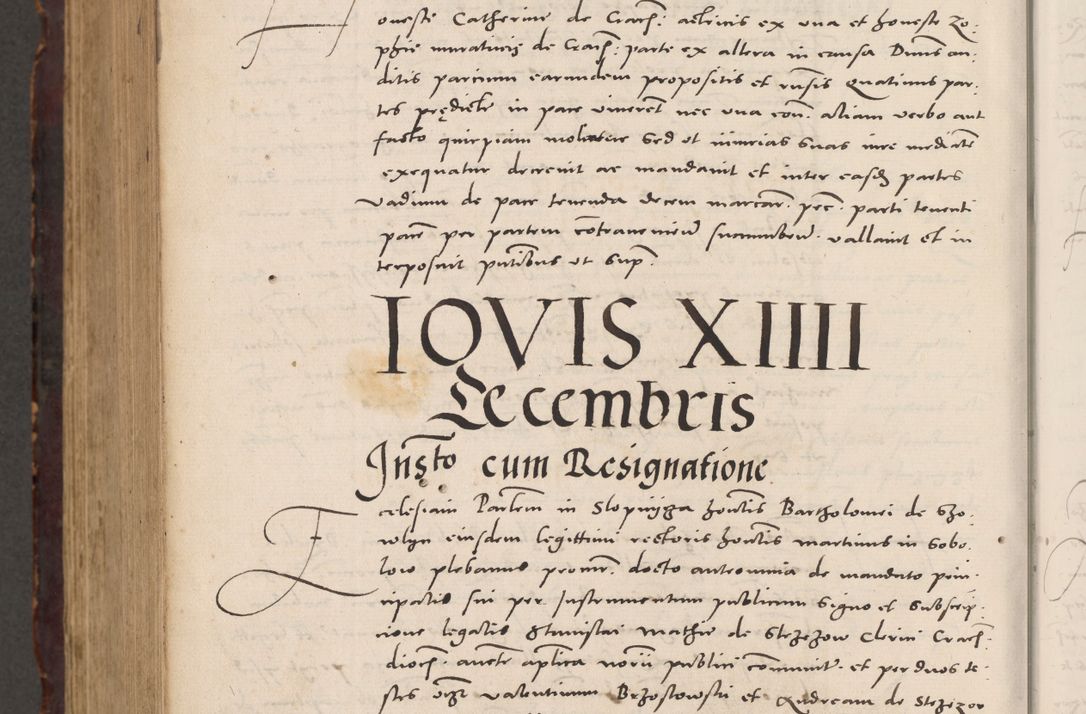 oneste Catherine de Crac: actricis ex una et honeste Zo-
phie muratricis de Crac: parte ex altera in causa Dnus au-
ditis parcium earundem propositis et rnsis quatinus par-
tes prędicte in pace viverent nec una con: aliam verbo aut
facto quicpiam molestare Sed ut iniurias suas iure mediate
exequatur decrevit ac mandavit et inter easd partes
vadium de pace tenenda decem marcar: pec: parti tenenti
pacem per partem contravenien succumben: vallavit et in
terposuit pntibus ut sup:
IOVIS XIIII
Decembris
Insto cum Resignatione
Ecclesiam Parlem in Slopnyga hontis Bartholomei de
eiusdem legittimi rectoris hontis martinus in Sobo-
low plebanus procur: docto anteomnia de mandato prin-
cipalis sui per Instrumentum publicum signo et subscrip-
cione legalis Stanislai Mathie de Stezezow Clerici Crac:
dioc: aucte aplica norii publici communit: et per duos te-
stes Valentinum Brzostowski et Andream de Stezezow